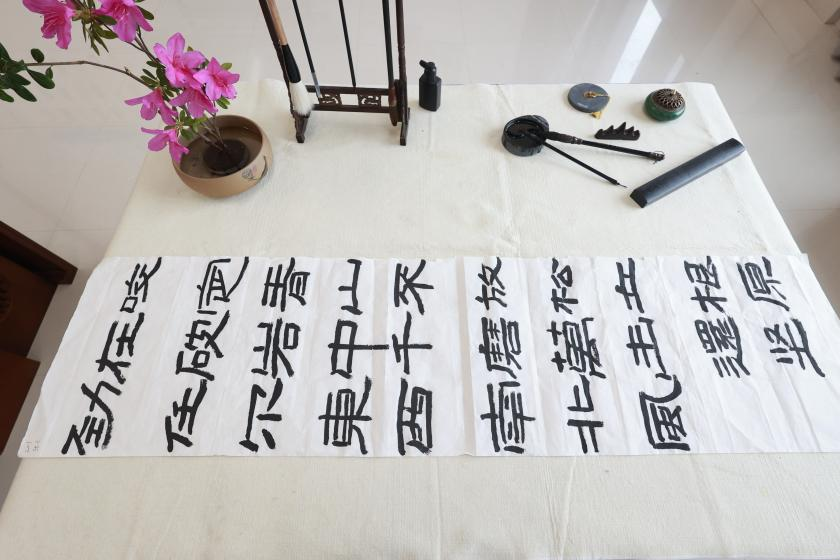 咬定青山不放松立根原
在破岩中千磨萬击還坚
劲任尔東西南北風